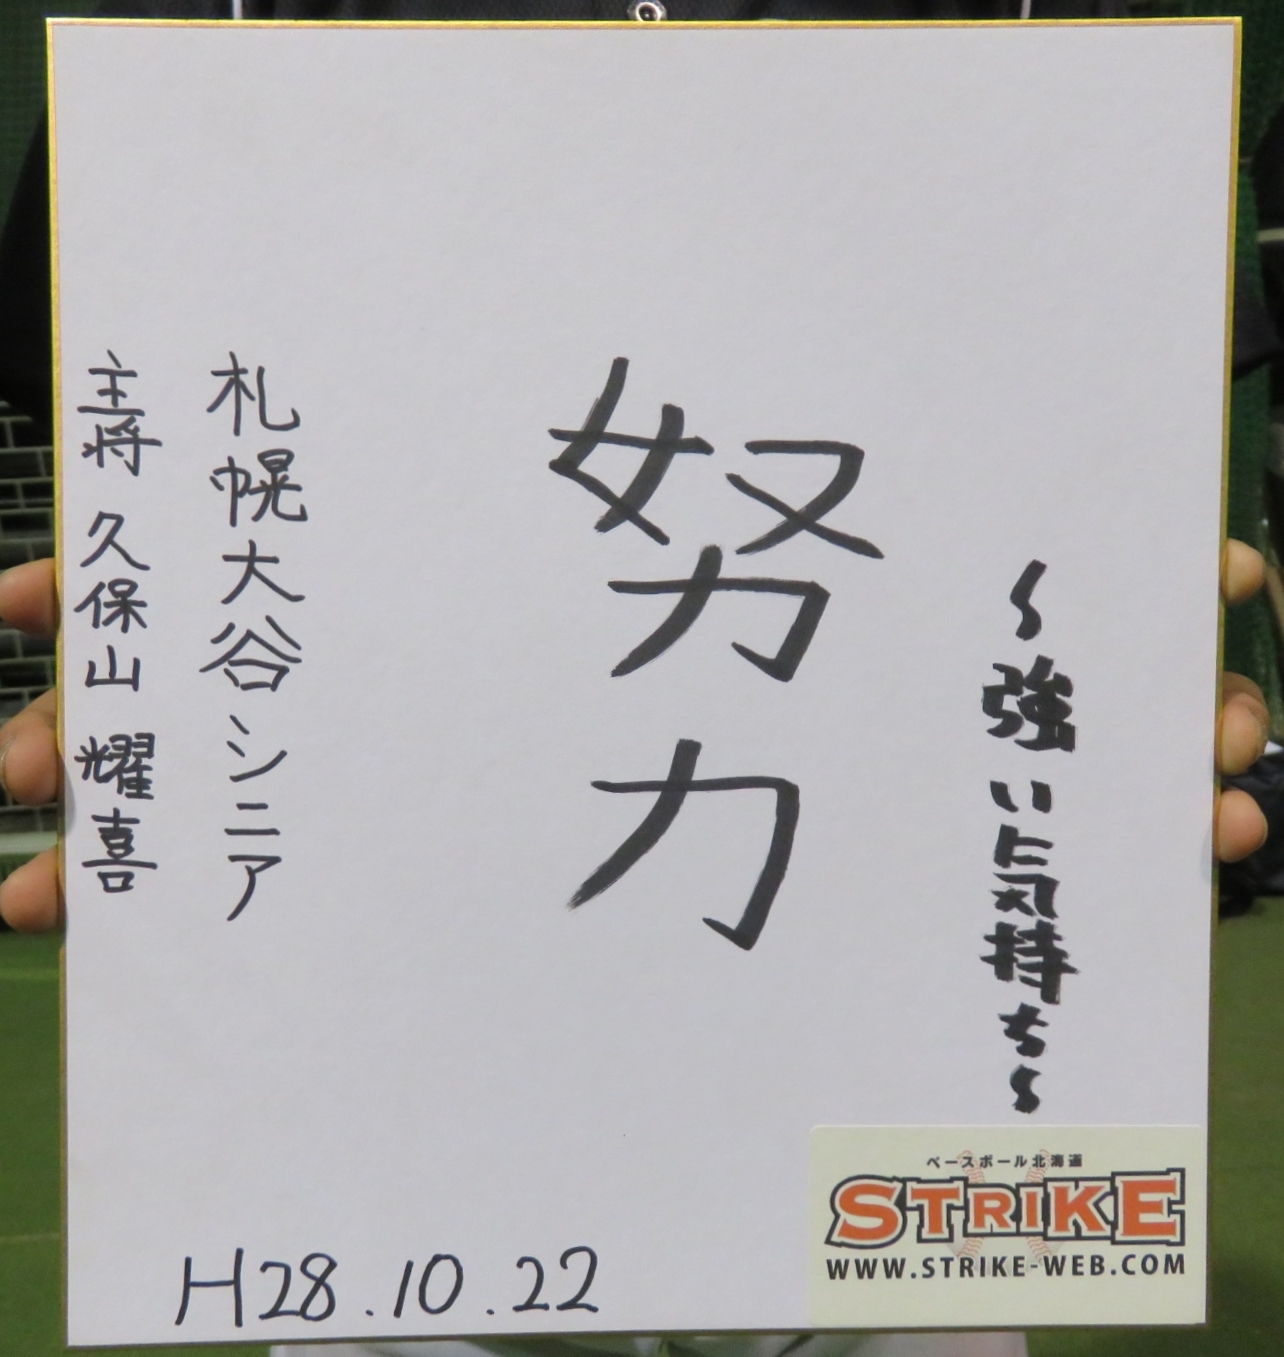 ～強い気持ち～
努力
札幌大谷シニア
主将 久保山 耀喜
H28.10.22
ベースボール北海道
STRIKE
WWW.STRIKE-WEB.COM